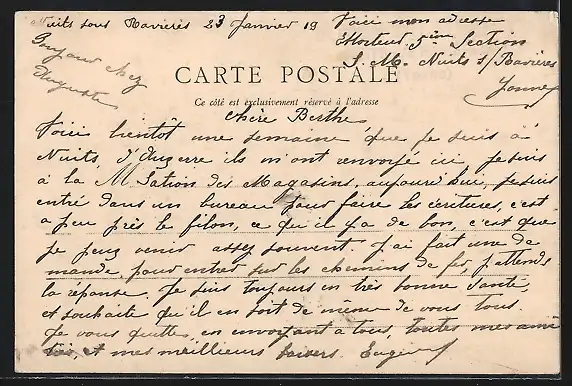 Nuits sous Ravières 23 Janvier 19
Voici mon adresse
5ème Section
S. M. Nuits s/ Ravières
Yonne
Bonjour chez
Auguste
CARTE POSTALE
Ce côté est exclusivement réservé à l'adresse
Chère Berthe
Voici bientôt une semaine que je suis à
Nuits, d'Auxerre ils m'ont renvoyé ici, je suis
à la M Station des Magasins, aujourd'hui, je suis
entré dans un bureau pour faire les écritures, c'est
a peu près le filon, ce qu'il y a de bon, c'est que
je peux venir assez souvent. J'ai fait une de
mande pour entrer sur les chemins de fer, j'attends
la réponse. Je suis toujours en très bonne santé,
et souhaite qu'il en soit de même de vous tous.
Je vous quitte, en envoyant a tous, toutes mes ami
tiés, et mes meilleurs baisers. Eugène